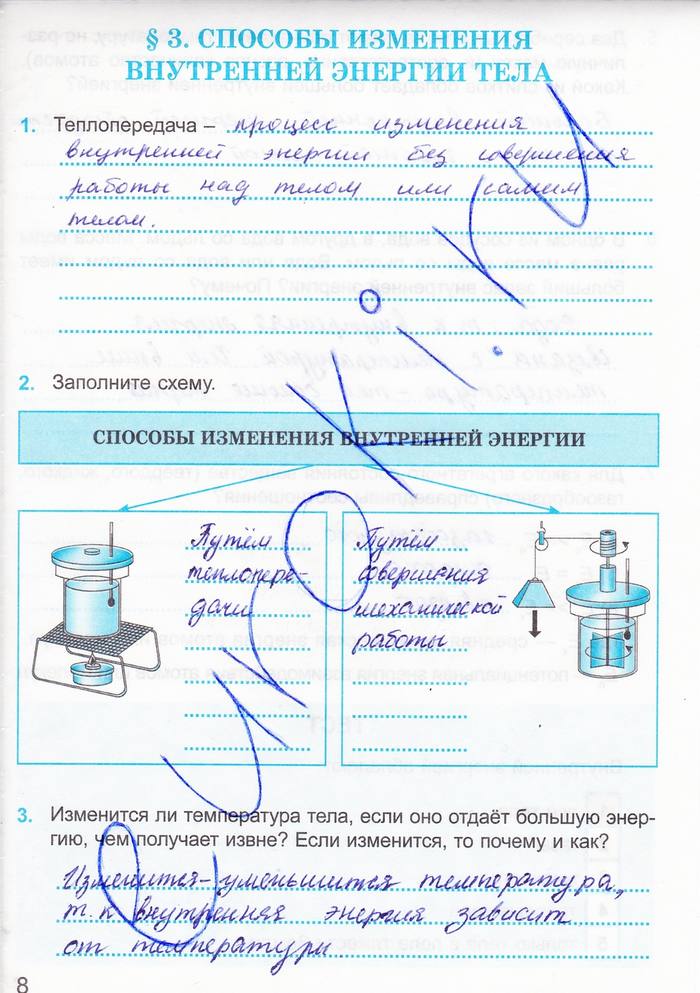 § 3. СПОСОБЫ ИЗМЕНЕНИЯ
ВНУТРЕННЕЙ ЭНЕРГИИ ТЕЛА
1. Теплопередача – процесс изменения
внутренней энергии без совершения
работы над телом или самим
телом.
2. Заполните схему.
СПОСОБЫ ИЗМЕНЕНИЯ ВНУТРЕННЕЙ ЭНЕРГИИ
Путём
теплопере-
дачи
Путём
совершения
механической
работы
3. Изменится ли температура тела, если оно отдаёт большую энер-
гию, чем получает извне? Если изменится, то почему и как?
Изменится-уменьшится температура,
т.к внутренняя энергия зависит
от температуры.
8